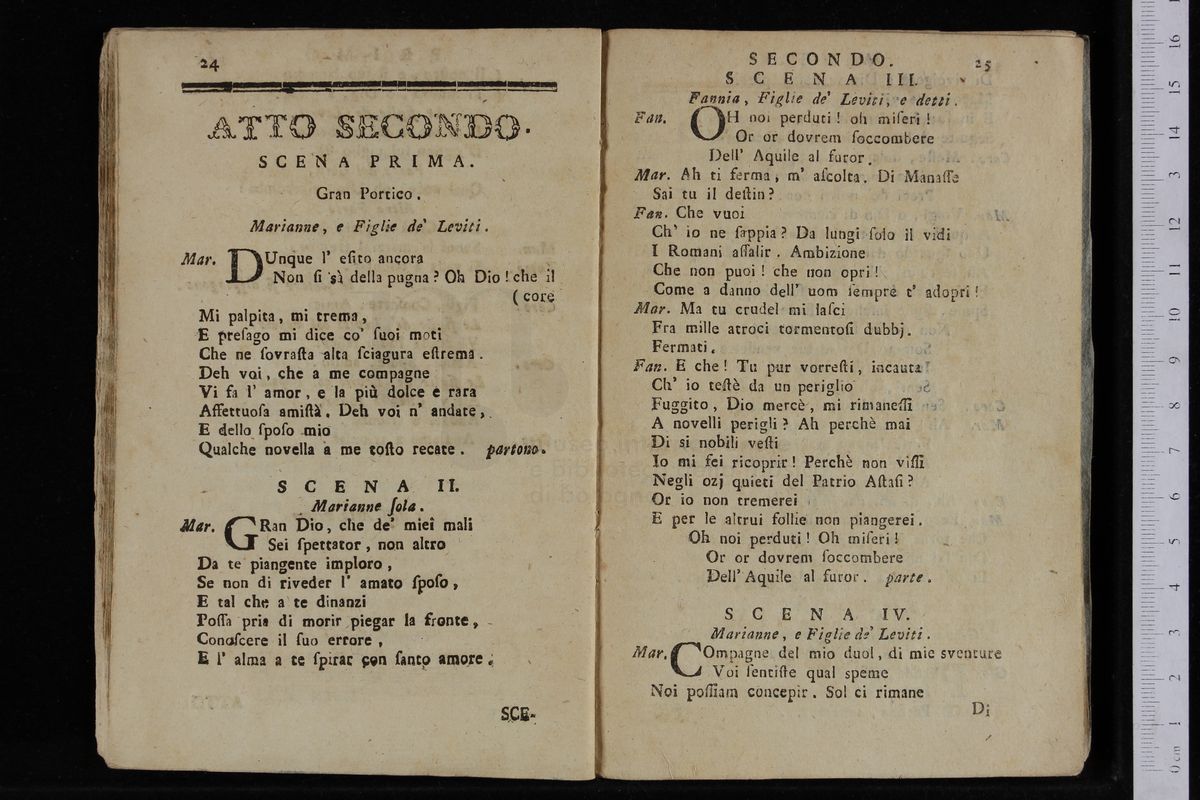 24
ATTO SECONDO.
SCENA PRIMA.
Gran Portico.
Marianne, e Figlie de' Leviti.
Mar. DUnque l' eſito ancora
Non ſi sà della pugna? Oh Dio! che il
(core
Mi palpita, mi trema,
E preſago mi dice co' ſuoi moti
Che ne ſovraſta alta ſciagura eſtrema.
Deh voi, che a me compagne
Vi fa l' amor, e la più dolce e rara
Affettuoſa amiſtà. Deh voi n' andate,
E dello ſpoſo mio
Qualche novella a me toſto recate. partono.
SCENA II.
Marianne ſola.
Mar. GRan Dio, che de' miei mali
Sei ſpettator, non altro
Da te piangente imploro,
Se non di riveder l' amato ſpoſo,
E tal che a te dinanzi
Poſſa pria di morir piegar la fronte,
Conoſcere il ſuo errore,
E l' alma a te ſpirar con ſanto amore.
SCE-
SECONDO. 25
SCENA III.
Fannia, Figlie de' Leviti, e detti.
Fan. OH noi perduti! oh miſeri!
Or or dovrem ſoccombere
Dell' Aquile al furor.
Mar. Ah ti ferma, m' aſcolta. Di Manaſſe
Sai tu il deſtin?
Fan. Che vuoi
Ch' io ne ſappia? Da lungi ſolo il vidi
I Romani aſſalir. Ambizione
Che non puoi! che non opri!
Come a danno dell' uom ſemprè t' adopri!
Mar. Ma tu crudel mi laſci
Fra mille atroci tormentoſi dubbj.
Fermati.
Fan. E che! Tu pur vorreſti, incauta
Ch' io teſtè da un periglio
Fuggito, Dio mercè, mi rimaneſſi
A novelli perigli? Ah perchè mai
Di si nobili veſti
Io mi fei ricoprir! Perchè non viſſi
Negli ozj quieti del Patrio Aſtaſi?
Or io non tremerei
E per le altrui follie non piangerei.
Oh noi perduti! Oh miſeri!
Or or dovrem ſoccombere
Dell' Aquile al furor. parte.
SCENA IV.
Marianne, e Figlie de' Leviti.
Mar. COmpagne del mio duol, di mie sventure
Voi ſentiſte qual speme
Noi poſſiam concepir. Sol ci rimane
Di